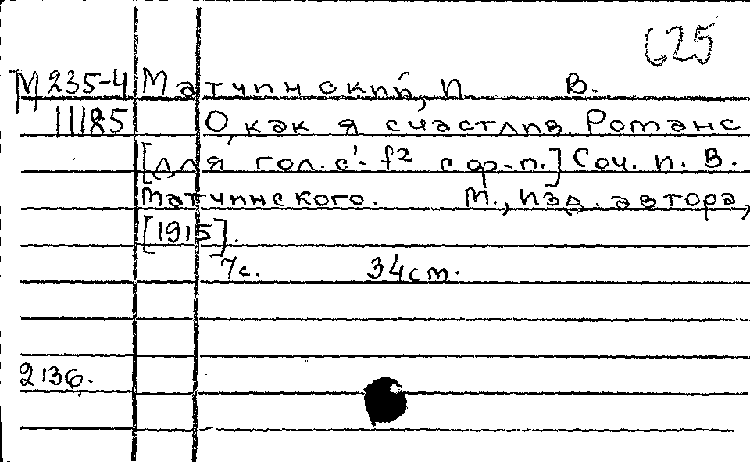 625
М 235-4 Матчинский, П. В.
11185 О, как я счастлив. Романс
[для гол. c¹-f² с ф-п.] Соч. П. В.
Матчинского. М., изд. автора,
[1915].
7 с. 34 см.
2136.